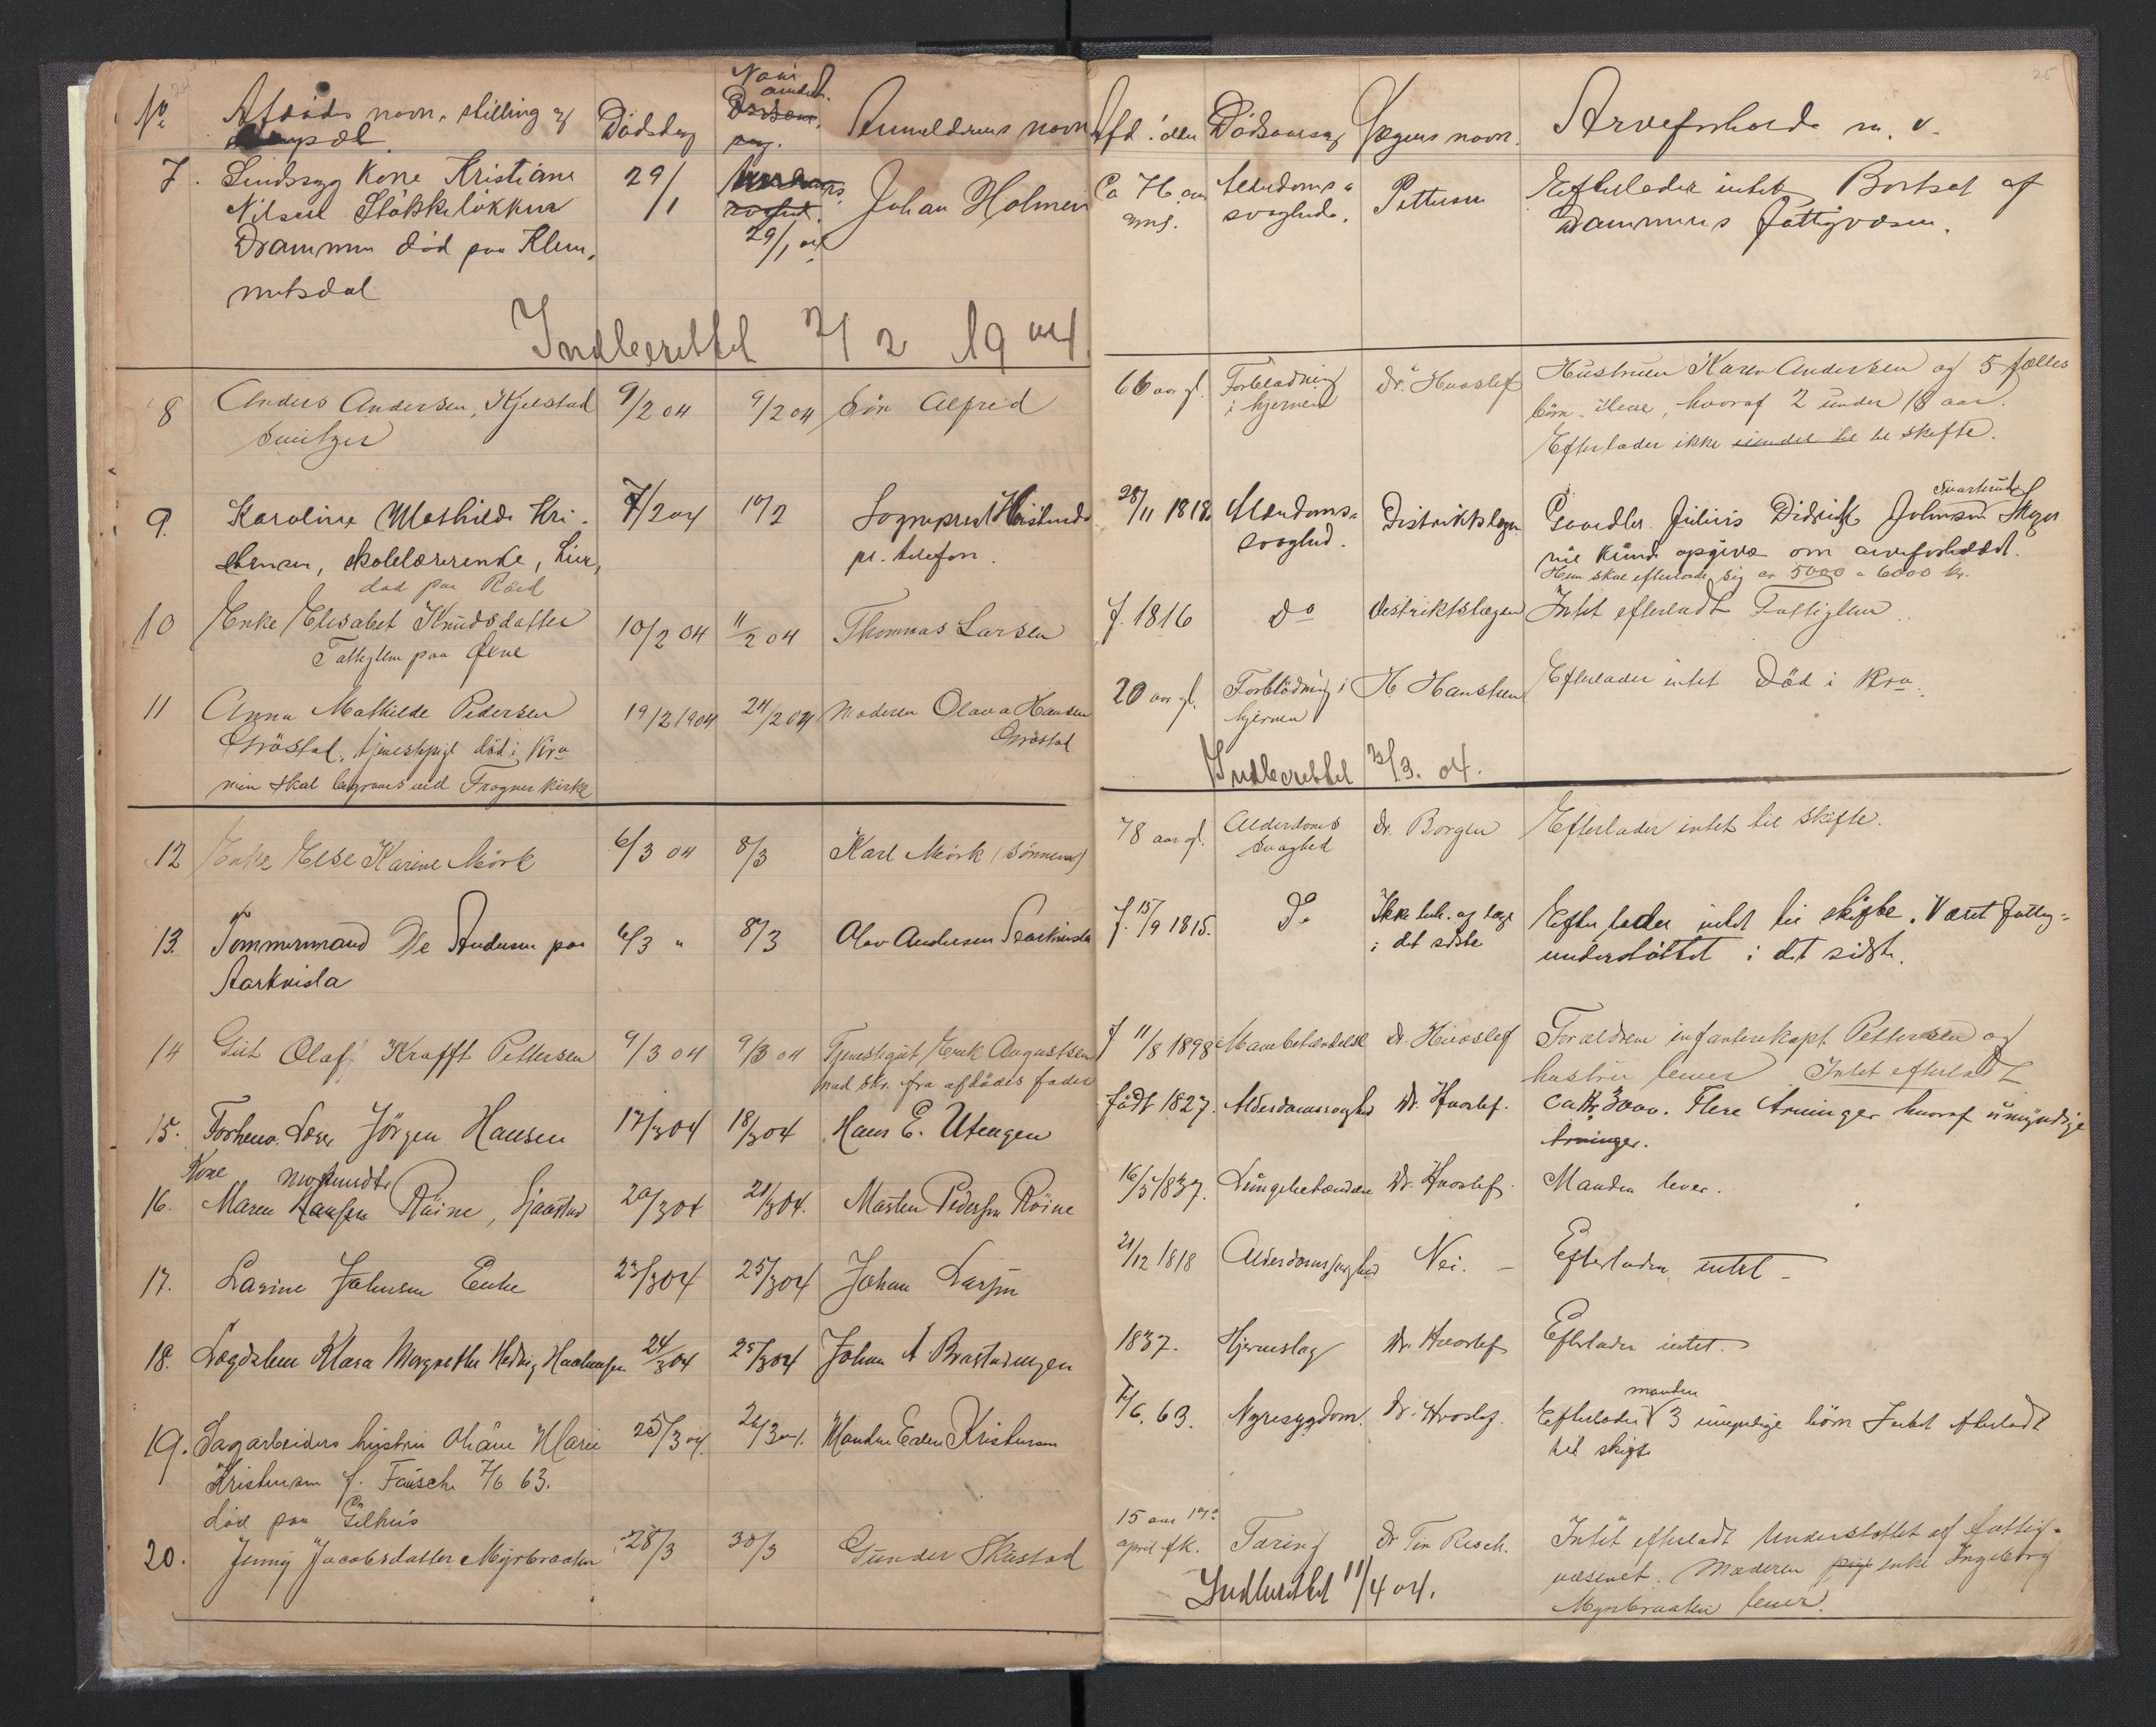 24
No Afdødes navn, stilling og
bopæl. Dødsdag Naar anmeldt. Anmelderens navn
7. Sindssyg kone Kristiane
Nilsen Støkkeløkken
Drammen død paa Klem,
metsdal
29/1
29/1 04
Johan Holmen
Indberettet 2/2 1904
8 Anders Andersen, Kjelstad 9/2 04 9/2 04 Søn Alfred
9. Karoline Mathilde Kri- 7/2 04 10/2 Sogneprest
stensen, skolelærerinde, Lier, pr. telefon.
død paa
10 Enke Elisabet Knudsdatter 10/2 04 11/2 04 Thommas Larsen
Fattiglem paa
11 Anna Mathilde Pedersen 19/2 1904 24/2 04 Moderen Olava Hansen
tjenestepige død i Kra
men skal begraves ved Frogner kirke
12 Enke Else Karine Mörk 6/3 04 8/3 Karl Mörk (sønnen)
13. Tømmermand Ole Andersen paa 6/3 " 8/3 Olav Andersen
14 Gut Olaf Krafft Pettersen 9/3 04 9/3 04 Tjenestegut Erik Augustsen
med skr. fra afdødes fader
15. Forhenv. Jörgen Hansen 17/3 04 18/3 04 Hans E. Utengen
Kone
16. Maren Röine, Sjaastad 20/3 04 21/3 04. Masten Pedersen Röine
17. Lavine Johnsen Enke 23/3 04 25/3 04 Johan Larsen
18. Lægdslem Klara Margrethe Hedvig 24/3 04 25/3 04 Johan A.
19. Sagarbeiders hustru Marie 25/3 04. 26/3 04. Manden Kristensen
Kristensen f. 7/6 63.
død paa Gilhus
20. Jenny Jacobsdatter Myrbraaten 28/3 30/3 Gunder Skustad
25
Afd. alder Dødsaarsag Lægens navn. Arveforholde m. v.
Ca Alderdoms- Pettersen Efterlader intet Bortsat af
svaghed. Drammens fattigvæsen.
66 aar gl. Forblødning i hjernen Dr. Hvoslef Hustruen Karen Andersen og 5 fælles
børn hvoraf 2 under 18 aar.
Efterlader ikke til skifte.
28/11 1818. Alderdoms-
svaghed. Distriktslægen Gaardbr. Julius Didrik Johnsen
vil kunde opgive om arveforholdet.
Hun skal efterlade sig ca 5000 a 6000 kr.
f. 1816 do Distriktslægen Intet efterladt Fattiglem
20 aar gl. Forblødning i hjernen H. Hanssen Efterlader intet Død i Kra.
Indberettet /3. 04.
78 aar gl. Alderdoms svaghed Dr. Borgen Efterlader intet til skifte.
f. 15/9 1815. Do Ikke beh. af læge
i det sidste Efterlader intet til skifte. Været fattig-
understøttet i det sidste.
f 11/8 1898 Dr. Hvoslef Forældrene infanterikapt. Pettersen og
hustru lever Intet efterladt
født 1827. Alderdomssvaghed Dr. Hvoslef. Ca Kr. 3000. Flere Arvinger hvoraf umyndige
Arvinger.
16/5 1837. Lungebetændelse Dr. Hvoslef. Manden lever.
21/12 1818 Alderdomssvaghed Nei. – Efterlader intet –
1837. Hjerneslag Dr. Hvoslef Efterlader intet.
7/6. 63. Nyresygdom. Dr. Hvoslef. Efterlader manden 3 umyndige börn Intet efterladt
til skifte
15 aar 17de
april fk. Tæring Dr Intet efterladt Understøttet af fattig-
væsenet. Moderen enke Ingeborg
Myrbraaten lever.
Indberettet 11/4 04.